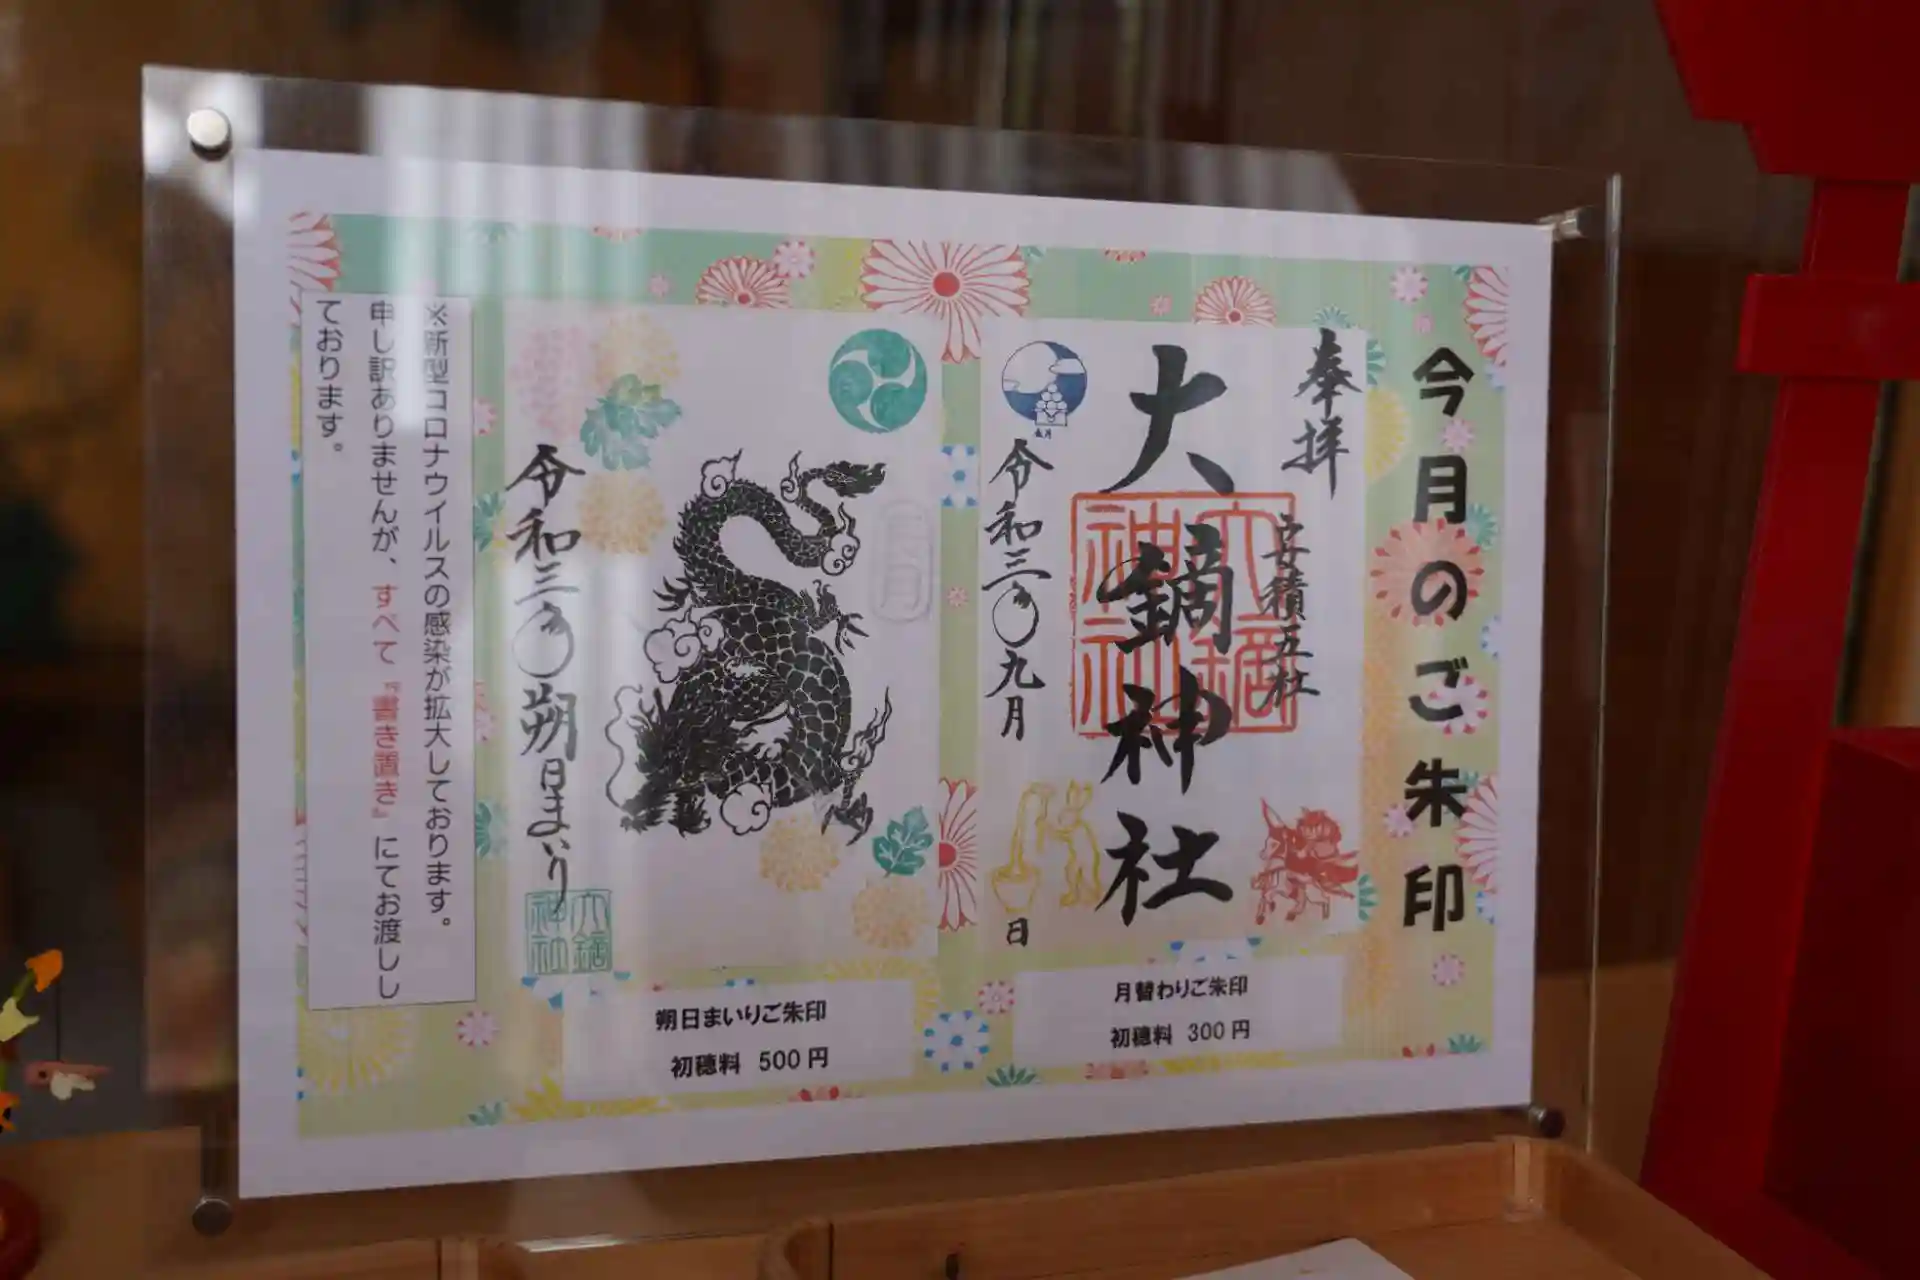 今月のご朱印
奉拝
安積五社
大鏑神社
大鏑
神社
令和三年九月
日
月替わりご朱印
初穂料 300円
令和三年朔日まいり
大鏑
神社
朔日まいりご朱印
初穂料 500円
※新型コロナウイルスの感染が拡大しております。
申し訳ありませんが、すべて『書き置き』にてお渡しし
ております。